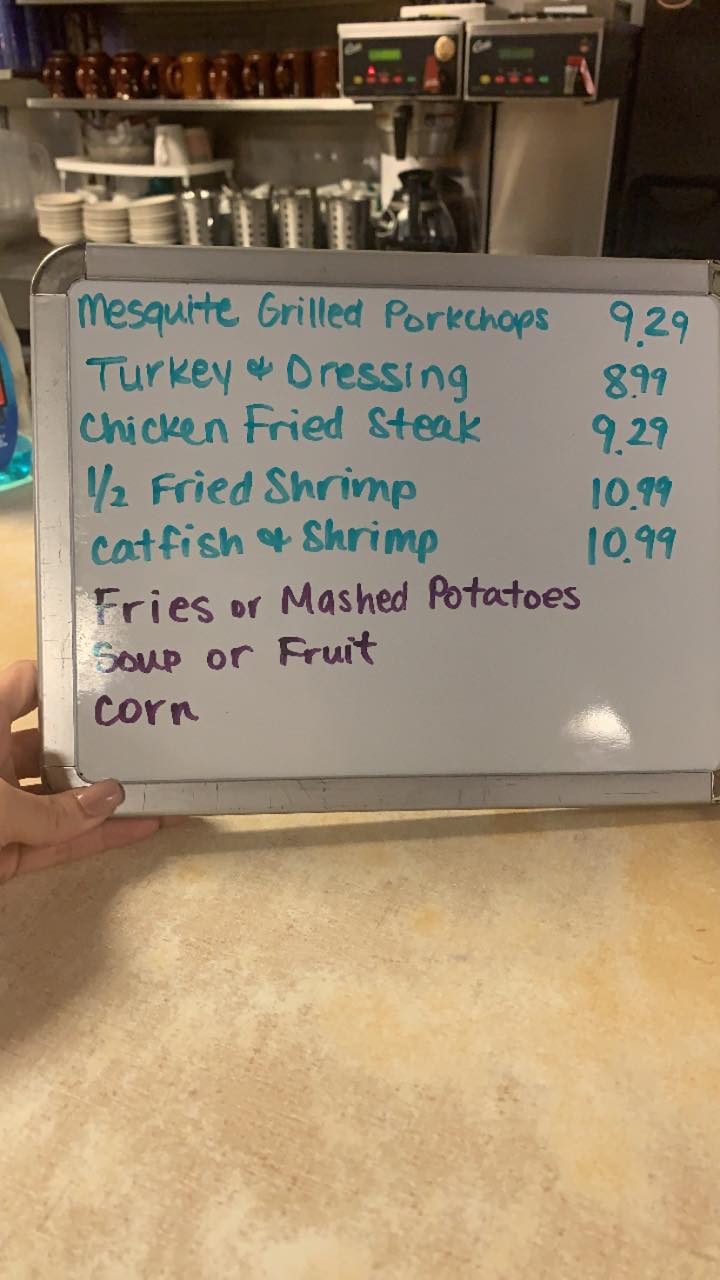 Mesquite Grilled Porkchops 9.29
Turkey & Dressing 8.99
Chicken Fried Steak 9.29
1/2 Fried Shrimp 10.99
Catfish & Shrimp 10.99
Fries or Mashed Potatoes
Soup or Fruit
Corn